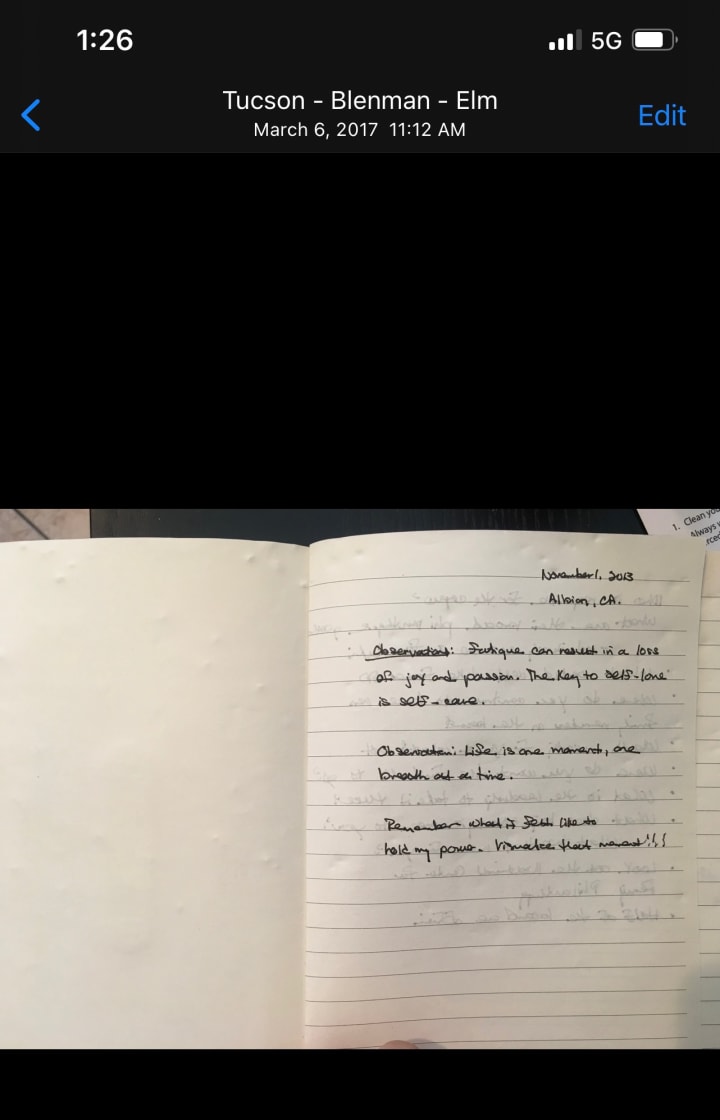 1:26
5G
Tucson - Blenman - Elm
March 6, 2017 11:12 AM
Edit
1. Clean you
Always
rced
November 1, 2013
Albion, CA.
Observation: Fatigue can result in a loss
of joy and passion. The Key to self-love
is self-care.
Observation: Life is one moment, one
breath at a time.
Remember what it felt like to
hold my power. Visualize that moment!!!